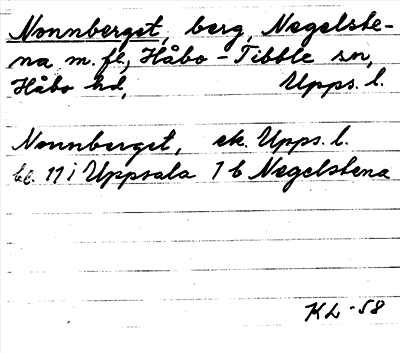 Nonnberget, berg, Negelste-
na m. fl., Håbo-Tibble sn,
Håbo hd, Upps. l.
Nonnberget, ek. Upps. l.
bl. 11 i Uppsala 1 b Negelstena
KL -58